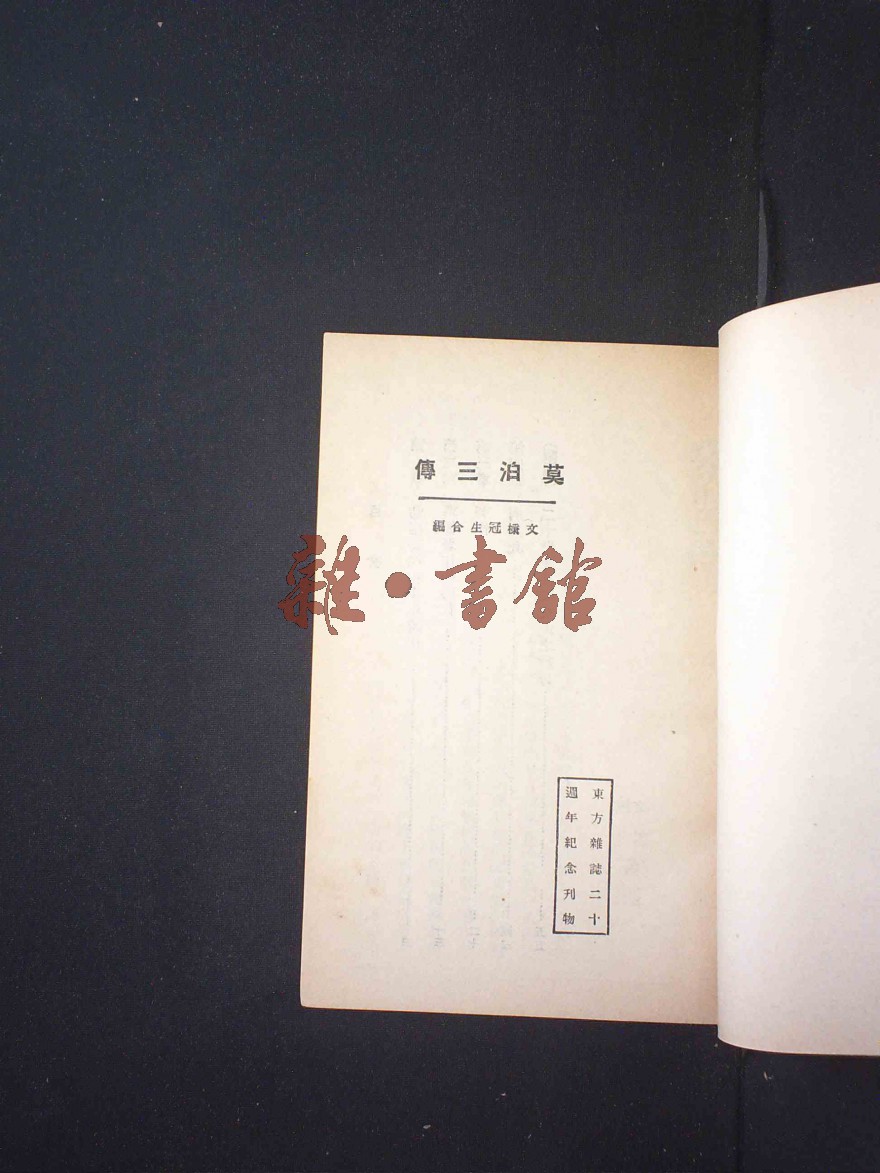 莫泊三傳
文檨冠生合編
雜·書館
東方雜誌二十
週年紀念刊物